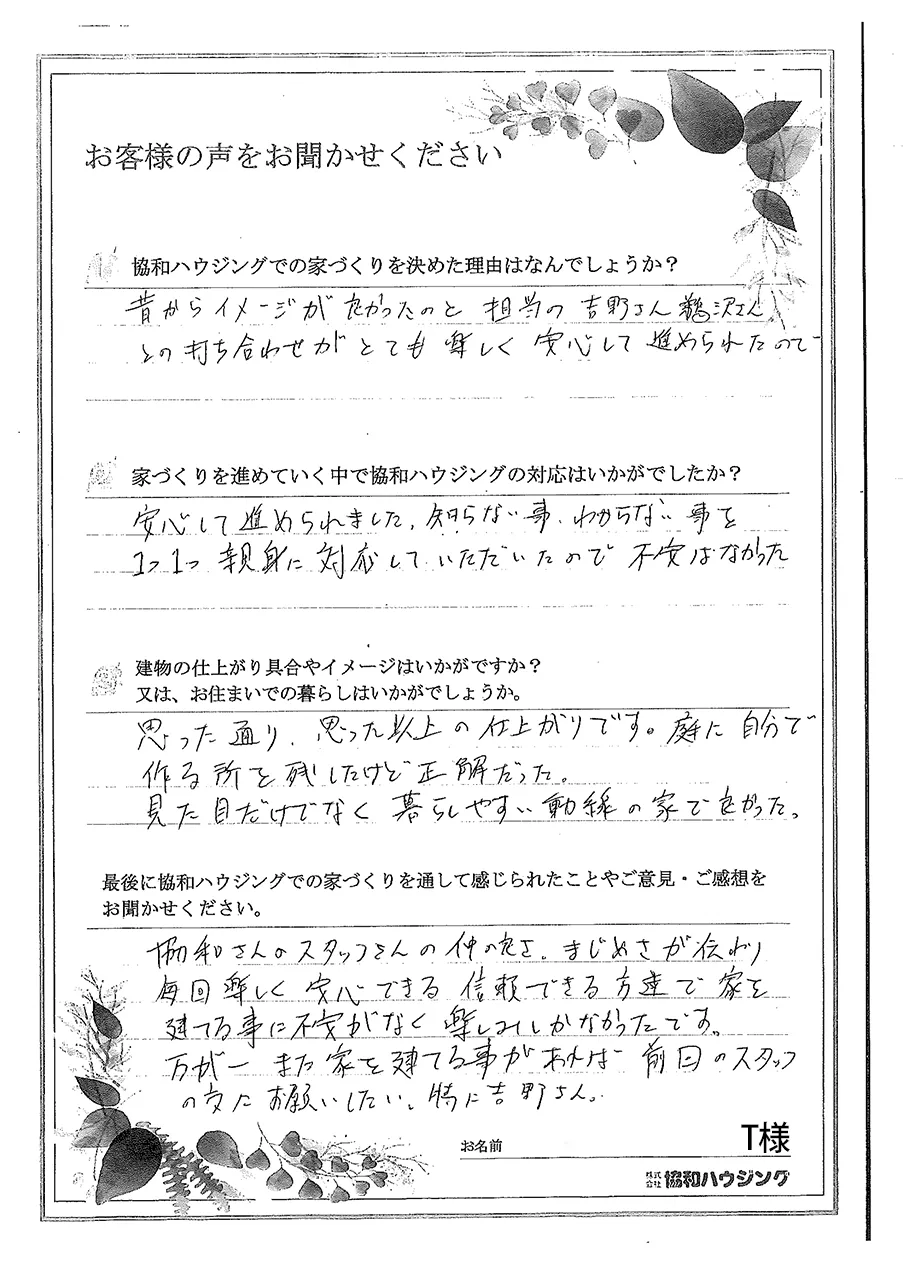 お客様の声をお聞かせください
1
協和ハウジングでの家づくりを決めた理由はなんでしょうか？
昔からイメージが良かったのと 担当の 吉野さん 鵜沢さん
との打ち合わせが とても 楽しく 安心して 進められたので
2
家づくりを進めていく中で協和ハウジングの対応はいかがでしたか？
安心して進められました。知らない事、わからない事を
1つ1つ 親身に 対応していただいたので 不安はなかった
3
建物の仕上がり具合やイメージはいかがですか？
又は、お住まいでの暮らしはいかがでしょうか。
思った通り、思った以上の仕上がりです。庭に 自分で
作る所を残したけど正解だった。
見た目だけでなく 暮らしやすい動線の家で良かった。
最後に協和ハウジングでの家づくりを通して感じられたことやご意見・ご感想を
お聞かせください。
協和さんのスタッフさんの仲の良さ、まじめさが伝わり
毎回楽しく 安心できる 信頼できる方達で 家を
建てる事に不安がなく 楽しみしかなかったです。
万が一 また 家を建てる事があれば 前回のスタッフ
の方に お願いしたい。特に吉野さん。
お名前 T様
株式会社 協和ハウジング